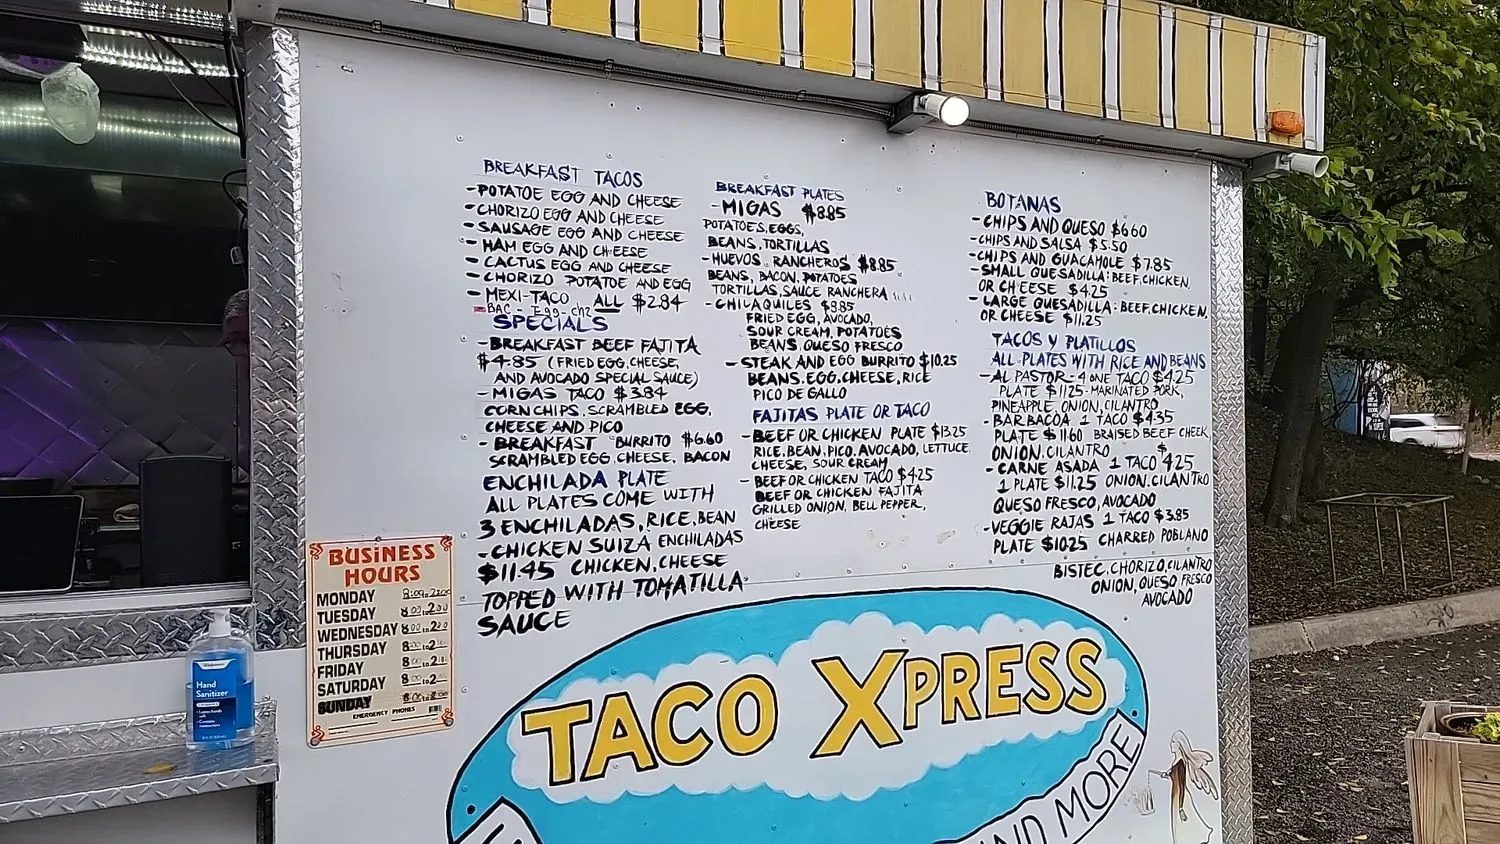 BREAKFAST TACOS
- POTATOE EGG AND CHEESE
- CHORIZO EGG AND CHEESE
- SAUSAGE EGG AND CHEESE
- HAM EGG AND CHEESE
- CACTUS EGG AND CHEESE
- CHORIZO POTATOE AND EGG
- MEXI-TACO ALL $2.84
- BAC - Egg - chz
SPECIALS
- BREAKFAST BEEF FAJITA
$4.85 (FRIED EGG, CHEESE,
AND AVOCADO SPECIAL SAUCE)
- MIGAS TACO $3.84
CORN CHIPS, SCRAMBLED EGG,
CHEESE AND PICO
- BREAKFAST BURRITO $6.60
SCRAMBLED EGG, CHEESE, BACON
ENCHILADA PLATE
ALL PLATES COME WITH
3 ENCHILADAS, RICE, BEAN
- CHICKEN SUIZA ENCHILADAS
$11.45 CHICKEN, CHEESE
TOPPED WITH TOMATILLA
SAUCE
BREAKFAST PLATES
- MIGAS $8.85
POTATOES, EGGS,
BEANS, TORTILLAS
- HUEVOS RANCHEROS $8.85
BEANS, BACON, POTATOES
TORTILLAS, SAUCE RANCHERA
- CHILAQUILES $9.85
FRIED EGG, AVOCADO,
SOUR CREAM, POTATOES
BEANS, QUESO FRESCO
- STEAK AND EGG BURRITO $10.25
BEANS, EGG, CHEESE, RICE
PICO DE GALLO
FAJITAS PLATE OR TACO
- BEEF OR CHICKEN PLATE $13.25
RICE, BEAN, PICO, AVOCADO, LETTUCE,
CHEESE, SOUR CREAM
- BEEF OR CHICKEN TACO $4.25
BEEF OR CHICKEN FAJITA
GRILLED ONION, BELL PEPPER,
CHEESE
BOTANAS
- CHIPS AND QUESO $6.60
- CHIPS AND SALSA $5.50
- CHIPS AND GUACAMOLE $7.85
- SMALL QUESADILLA: BEEF, CHICKEN,
OR CHEESE $4.25
- LARGE QUESADILLA: BEEF, CHICKEN,
OR CHEESE $11.25
TACOS Y PLATILLOS
ALL PLATES WITH RICE AND BEANS
- AL PASTOR - ONE TACO $4.25
PLATE $11.25 - MARINATED PORK,
PINEAPPLE, ONION, CILANTRO
- BARBACOA 1 TACO $4.35
PLATE $11.60 BRAISED BEEF CHECK,
ONION, CILANTRO
- CARNE ASADA 1 TACO $4.25
1 PLATE $11.25 ONION, CILANTRO
QUESO FRESCO, AVOCADO
- VEGGIE RAJAS 1 TACO $3.85
PLATE $10.25 CHARRED POBLANO
BISTEC, CHORIZO, CILANTRO
ONION, QUESO FRESCO
AVOCADO
BUSINESS
HOURS
MONDAY 8:00 TO 2:00
TUESDAY 8:00 TO 2:00
WEDNESDAY 8:00 TO 2:00
THURSDAY 8:00 TO 2:00
FRIDAY 8:00 TO 2:00
SATURDAY 8:00 TO 2:00
SUNDAY
EMERGENCY PHONES
Walgreens
Hand
Sanitizer
TACO XPRESS
AND MORE